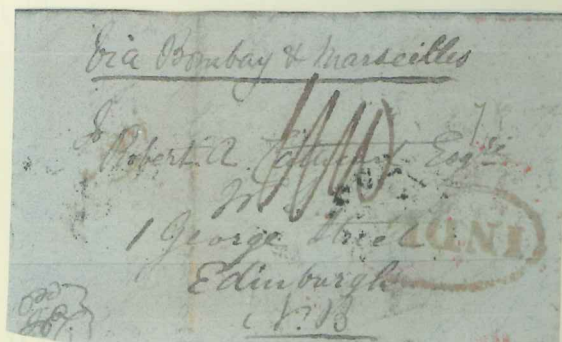 Via Bombay & Marseilles
To
Robert A. Esqre
1 George Street
Edinburgh
N.B
INDIA